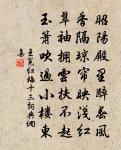 昭陽殿裏醉春風
香隔瓊簾映淺紅
翠袖擁雲扶不起
玉簫吹過小樓東
王冕紅梅十三詞典網
集